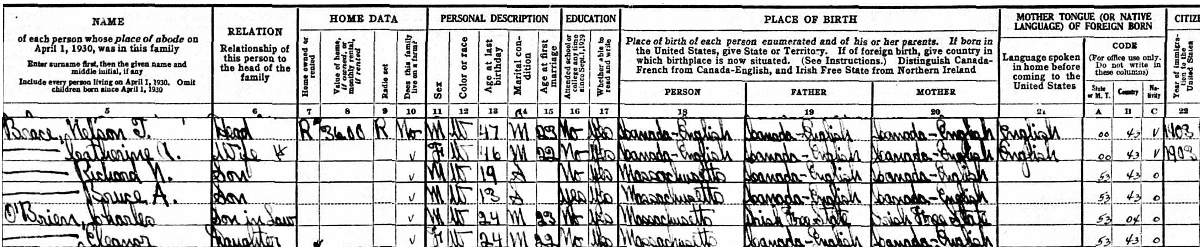 NAME
of each person whose place of abode on
April 1, 1930, was in this family
Enter surname first, then the given name and
middle initial, if any
Include every person living on April 1, 1930. Omit
children born since April 1, 1930
RELATION
Relationship of
this person to
the head of the
family
HOME DATA
Home owned or
rented
Value of home,
if owned, or
monthly rental,
if rented
Radio set
Does this family
live on a farm?
PERSONAL DESCRIPTION
Sex
Color or race
Age at last
birthday
Marital con-
dition
Age at first
marriage
EDUCATION
Attended school or
college any time
since Sept. 1, 1929
Whether able to
read and write
PLACE OF BIRTH
Place of birth of each person enumerated and of his or her parents. If born in
the United States, give State or Territory. If of foreign birth, give country in
which birthplace is now situated. (See Instructions.) Distinguish Canada-
French from Canada-English, and Irish Free State from Northern Ireland
PERSON FATHER MOTHER
MOTHER TONGUE (OR NATIVE
LANGUAGE) OF FOREIGN BORN
Language spoken
in home before
coming to the
United States
CODE
(For office use only.
Do not write in
these columns)
State
or M. T.
Country
Na-
tivity
CITIZ
Year of immigra-
tion to the
United States
5 6 7 8 9 10 11 12 13 14 15 16 17 18 19 20 21 A B C 22
Brace, Nelson J. Head R 36.00 R No M W 47 M 23 No Yes Canada-English Canada-English Canada-English English 00 43 V 1903
Catherine A. Wife H V F W 46 M 22 No Yes Canada-English Canada-English Canada-English English 00 43 V 1903
Richard N. Son V M W 19 S Yes Massachusetts Canada-English Canada-English 53 43 0
A. Son V M W 13 S Yes Yes Massachusetts Canada-English Canada-English 53 43 0
O'Brien, Charles Son in law V M W 24 M 23 No Yes Massachusetts Irish Free State Irish Free State 53 04 0
Eleanor Daughter V F W 24 M 22 No Yes Massachusetts Canada-English Canada-English 53 43 0